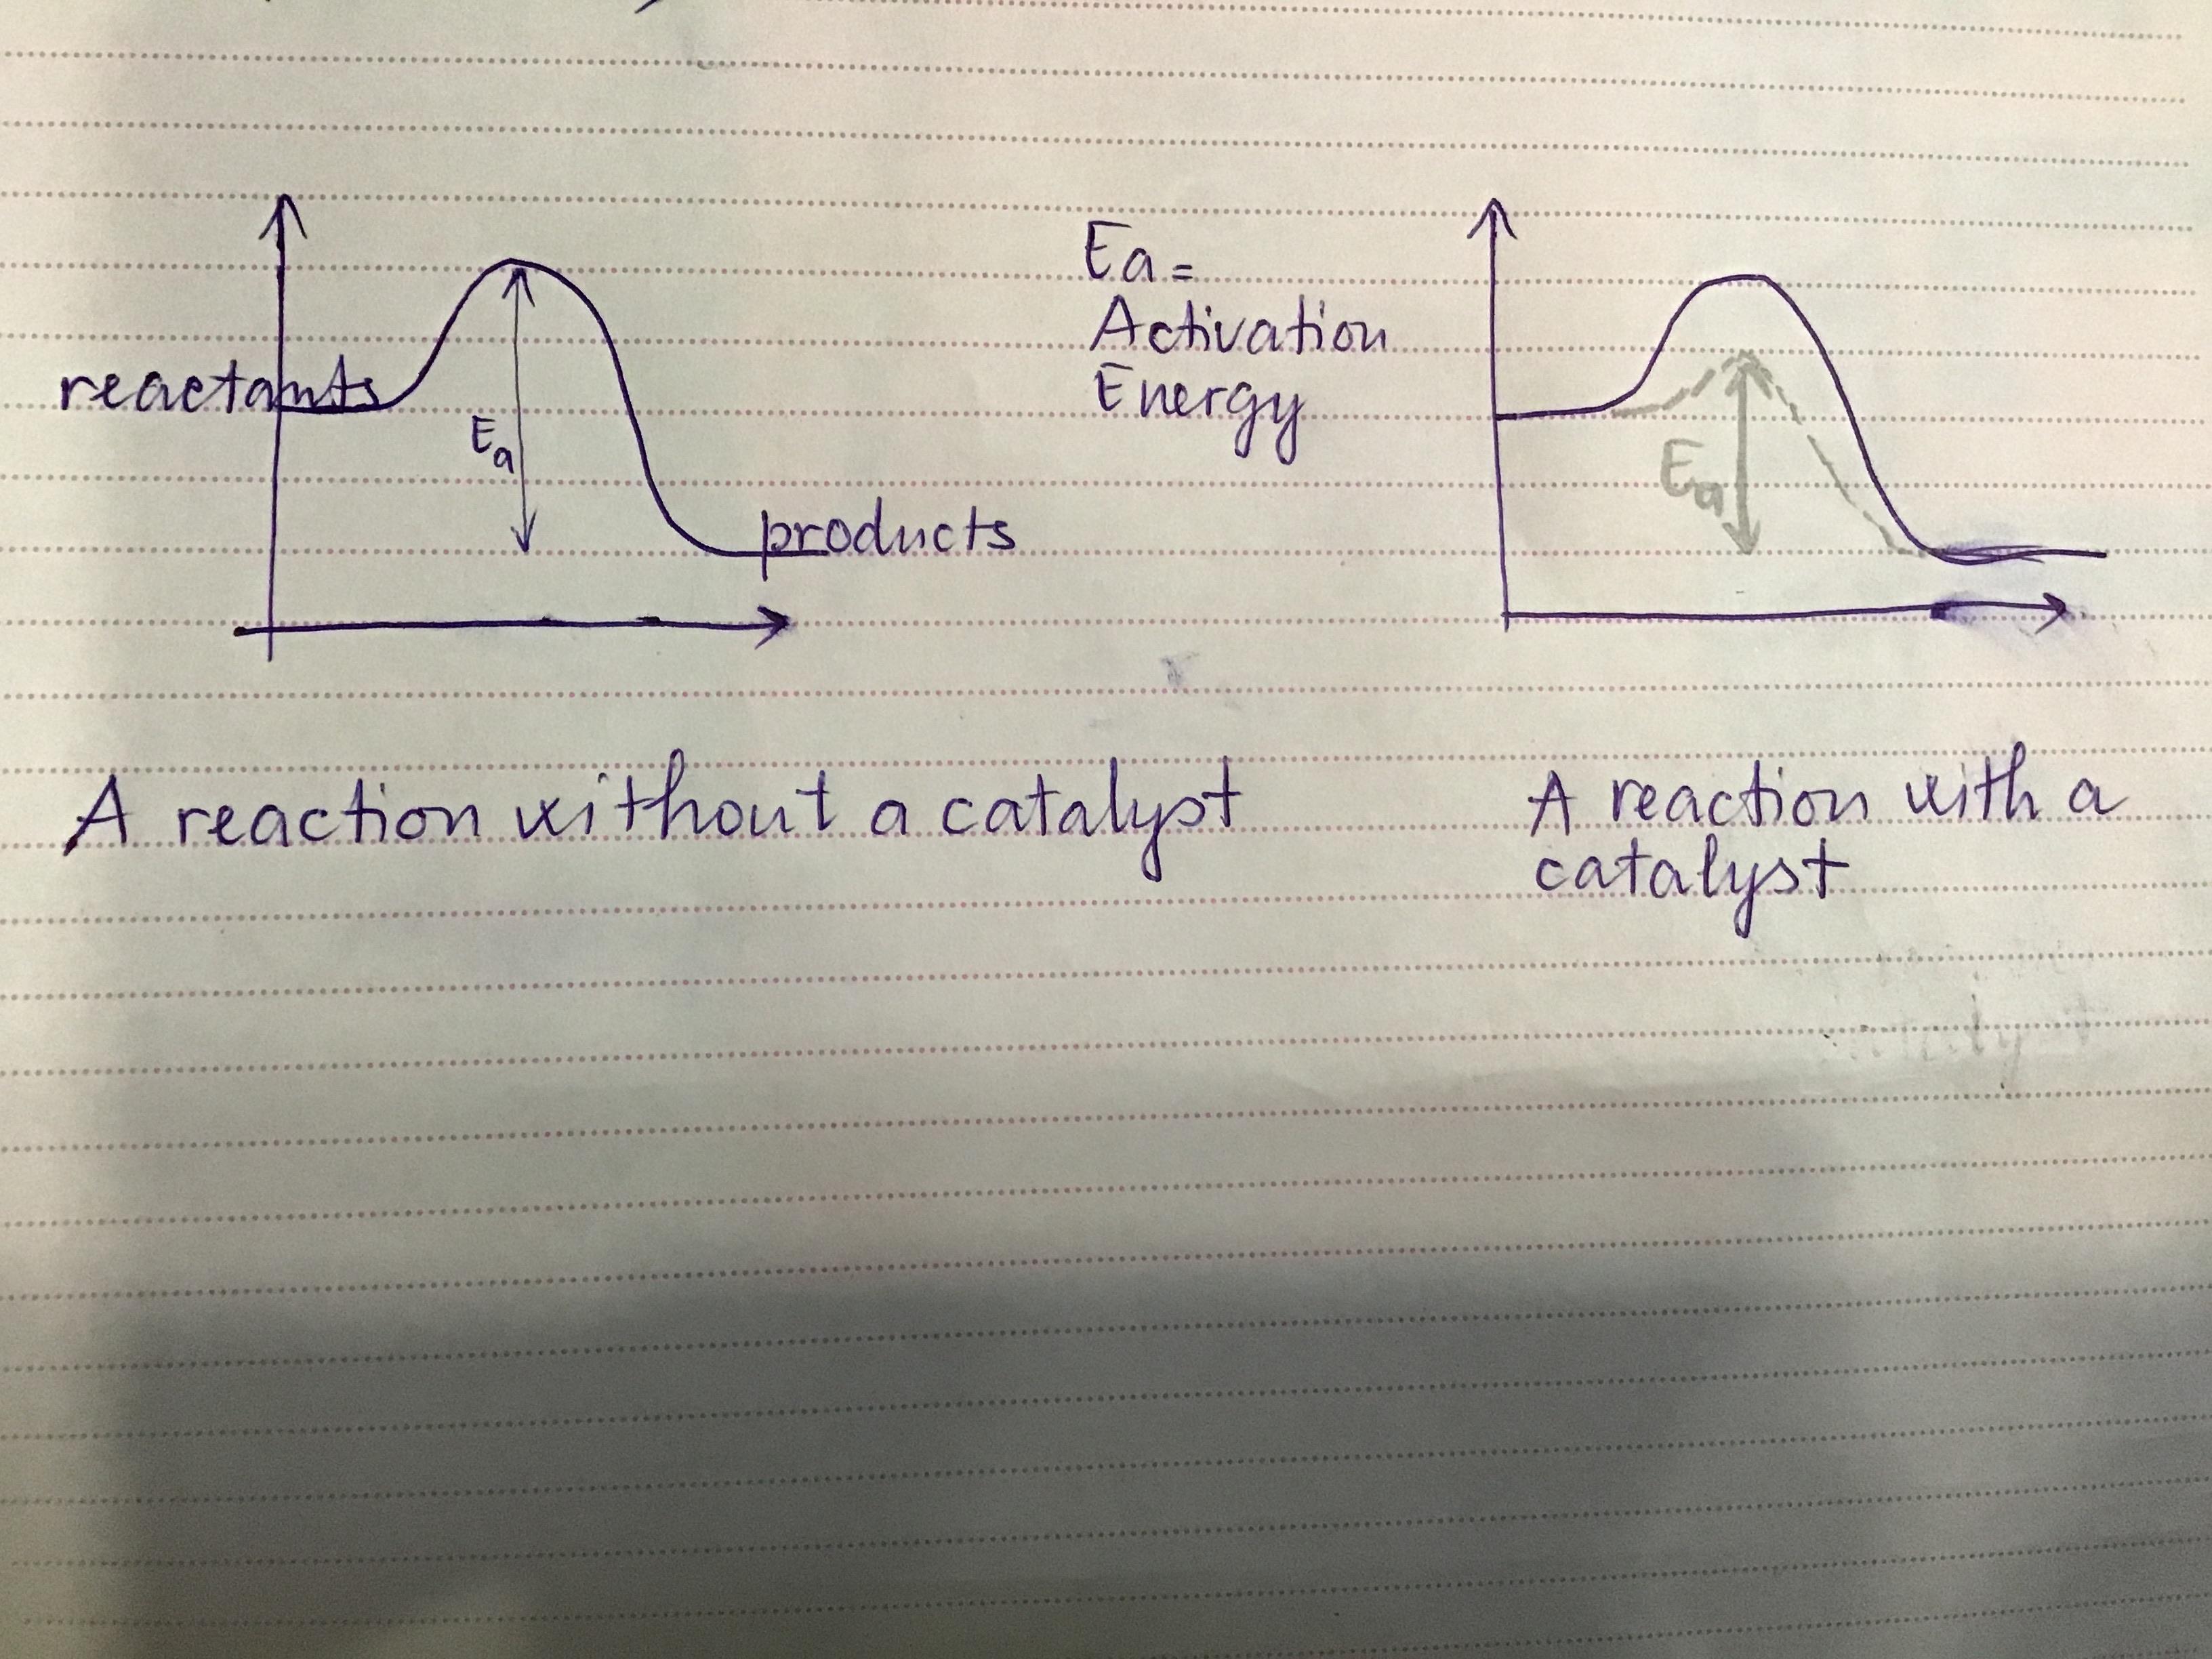 Ea =
Activation
Energy
reactants
Ea
products
Ea
A reaction without a catalyst
A reaction with a
catalyst